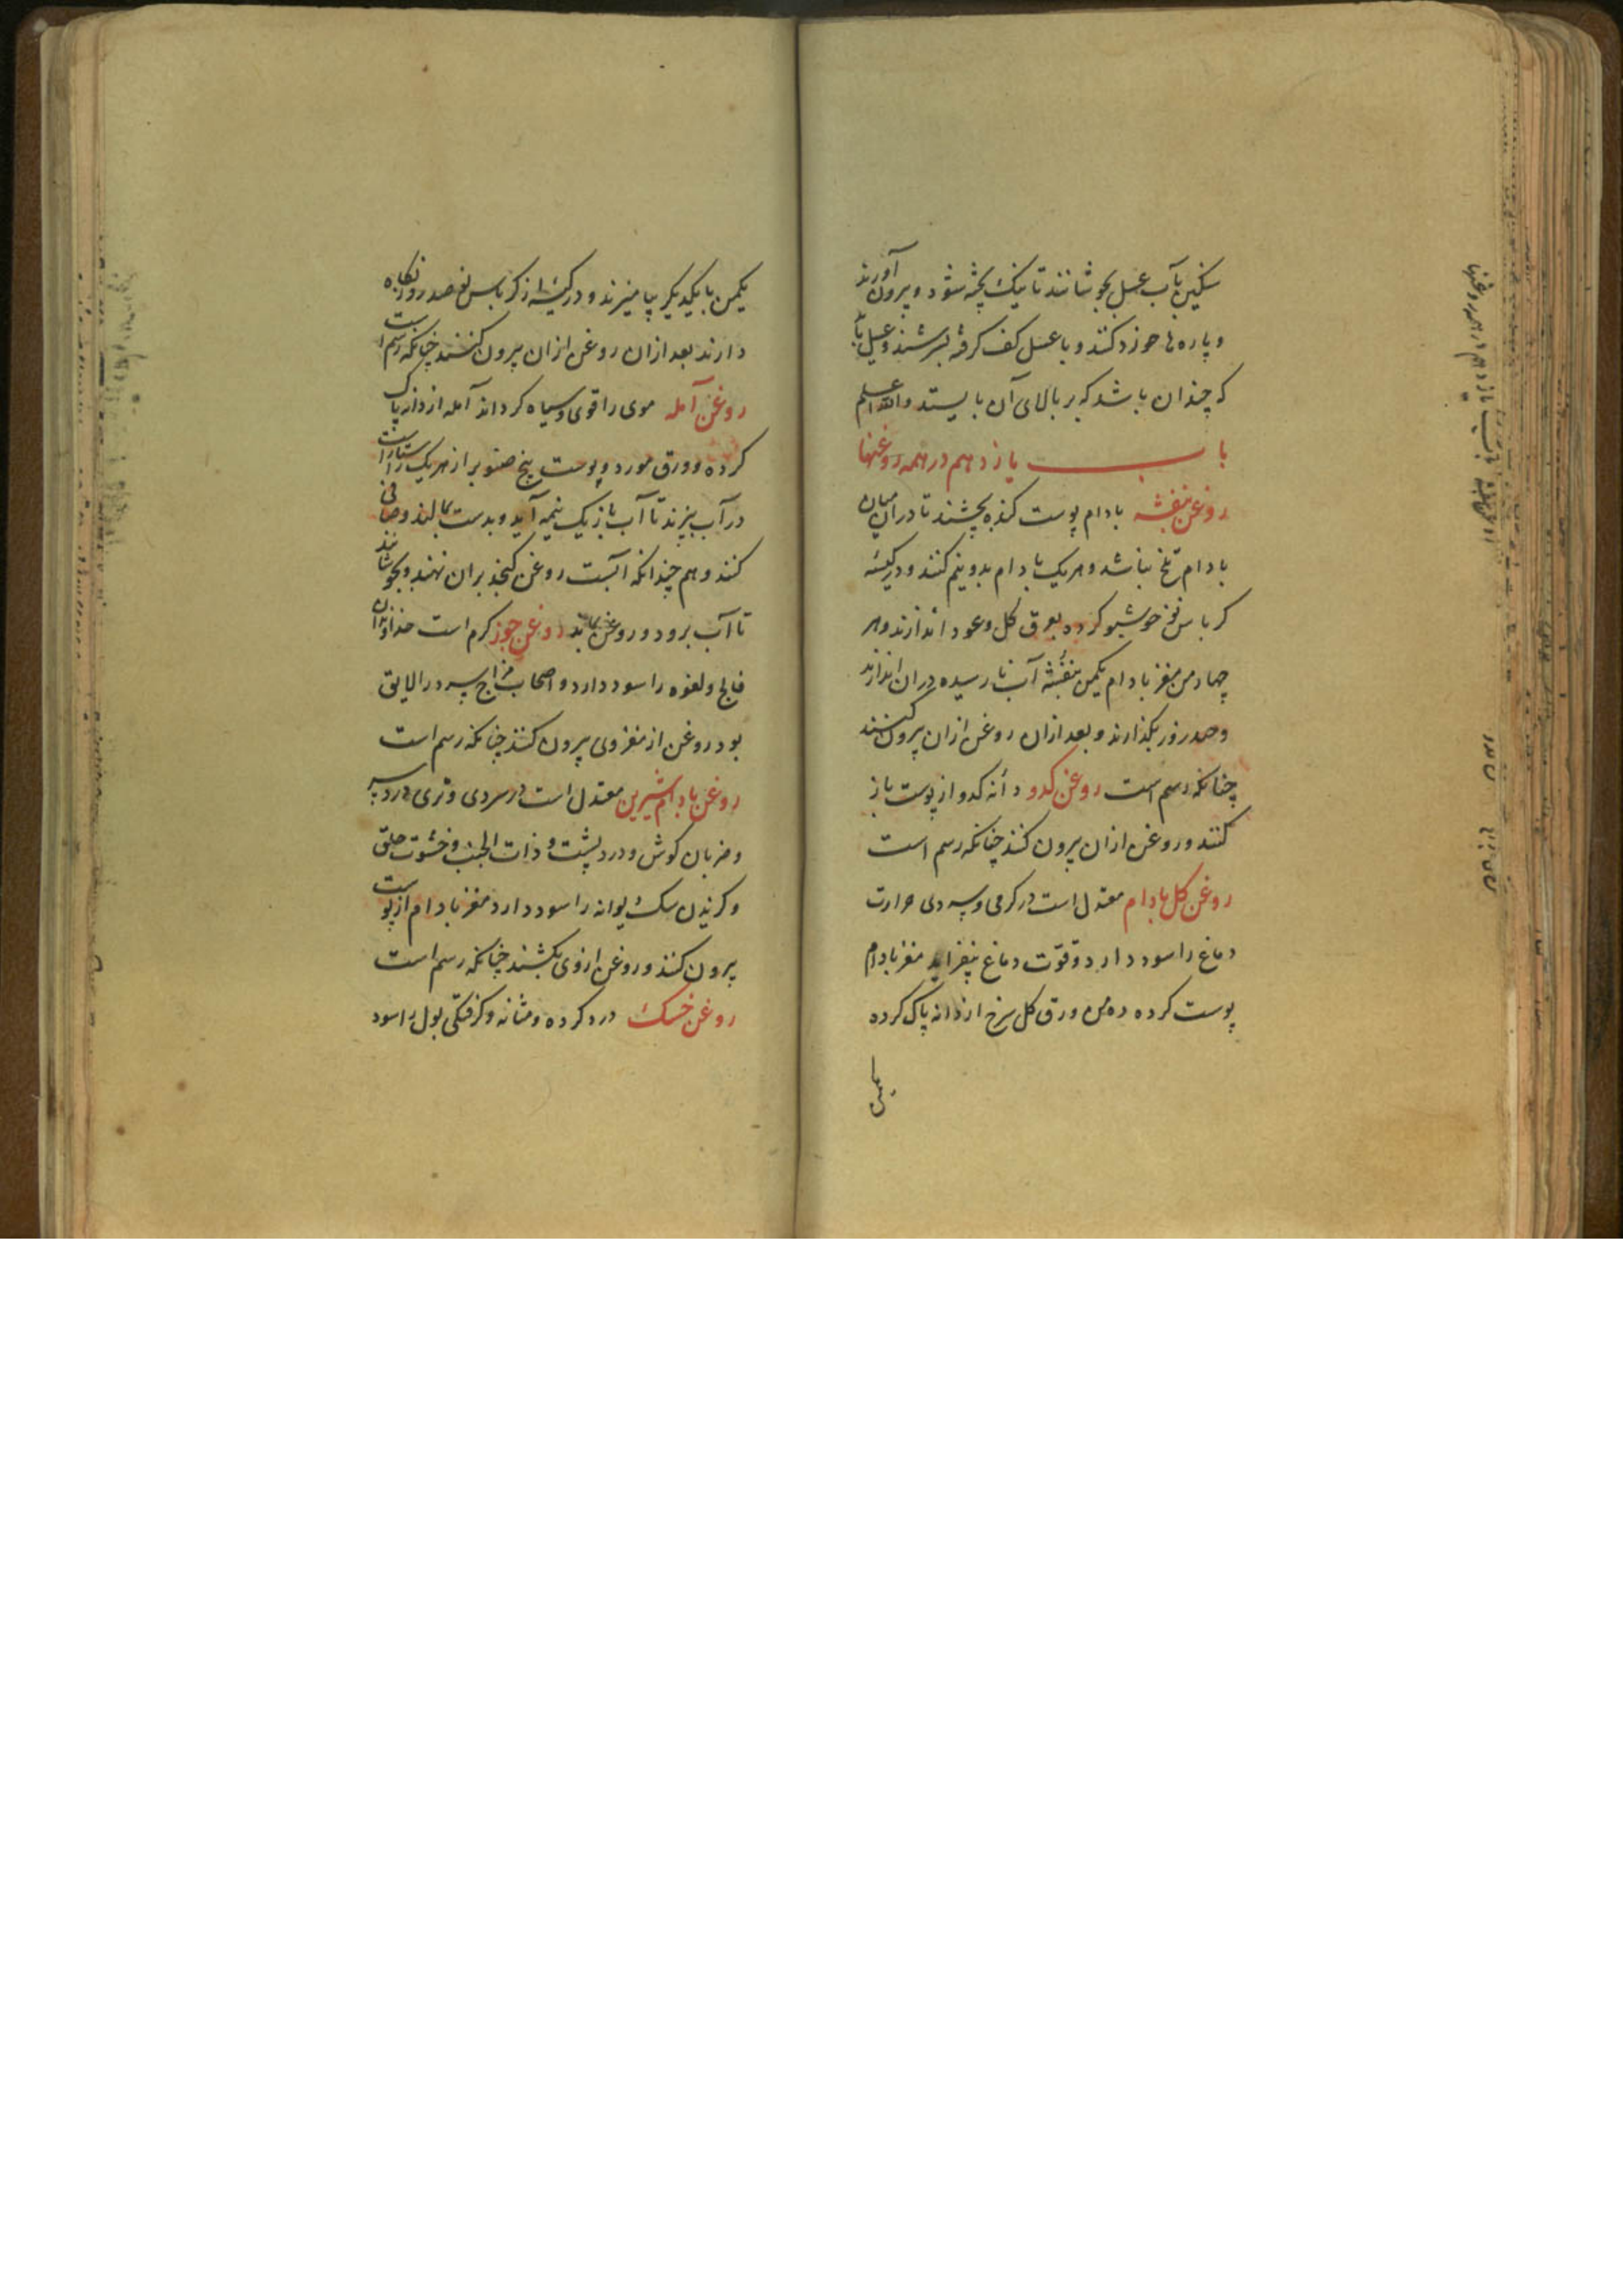 سنگین بآب عسل بجوشانند تا نیک پخته شود و بیرون آورند
و پاره‌ها خورد کنند و با عسل کف گرفته بسرشند و عسل باید
که چندان باشد که بر بالای آن بایستد والله اعلم
باب یازدهم در همه روغنها
روغن بنفشه بادام پوست کنده بچشند تا در آن میان
بادام تلخ نباشد و هر یک بادام بدو نیم کنند و در کیسه
کرباس نو خوشبو کرده بعرق کل و عود اندازند و هر
چهار من مغز بادام یکمن بنفشه آب نا رسیده در ان اندازند
و صد روز بگذارند و بعد ازان روغن ازان بیرون کنند
چنانکه رسم است روغن کدو دانه کدو از پوست باز
کنند و روغن ازان بیرون کنند چنانکه رسم است
روغن کل بادام معتدل است در کرمی و سردی حرارت
دماغ را سود دارد و قوت دماغ بیفزاید مغز بادام
پوست کرده ده من ورق کل سرخ از دانه پاک کرده
یکمن
یکمن با یکدیکر بیامیزند و در کیسه از کرباس نو صد روز نکاه
دارند بعد ازان روغن ازان بیرون کنند چنانکه رسم است
روغن آمله موی را قوی و سیاه کرداند آمله از دانه پاک
کرده و ورق مورد و پوست بیخ صنوبر از هر یک راستا راست
در آب بپزند تا آب باز یک نیمه آید و بدست بمالند و صافی
کنند و هم چندانکه آبست روغن کنجد بران نهند و بجوشانند
تا آب برود و روغن بماند روغن جوز کرم است خداوندان
فالج و لقوه را سود دارد و اصحاب مزاج سرد را لایق
بود روغن از مغز وی بیرون کنند چنانکه رسم است
روغن بادام شیرین معتدل است در سردی و تری درد سر
و ضربان کوش و درد پشت و ذات الجنب و خشونت حلق
و کزیدن سک دیوانه را سود دارد مغز بادام از پوست
بیرون کنند و روغن ازوی بکشند چنانکه رسم است
روغن خسک درد کرده و مثانه و کرفتکی بول را سود
باب یازدهم در همه روغنها